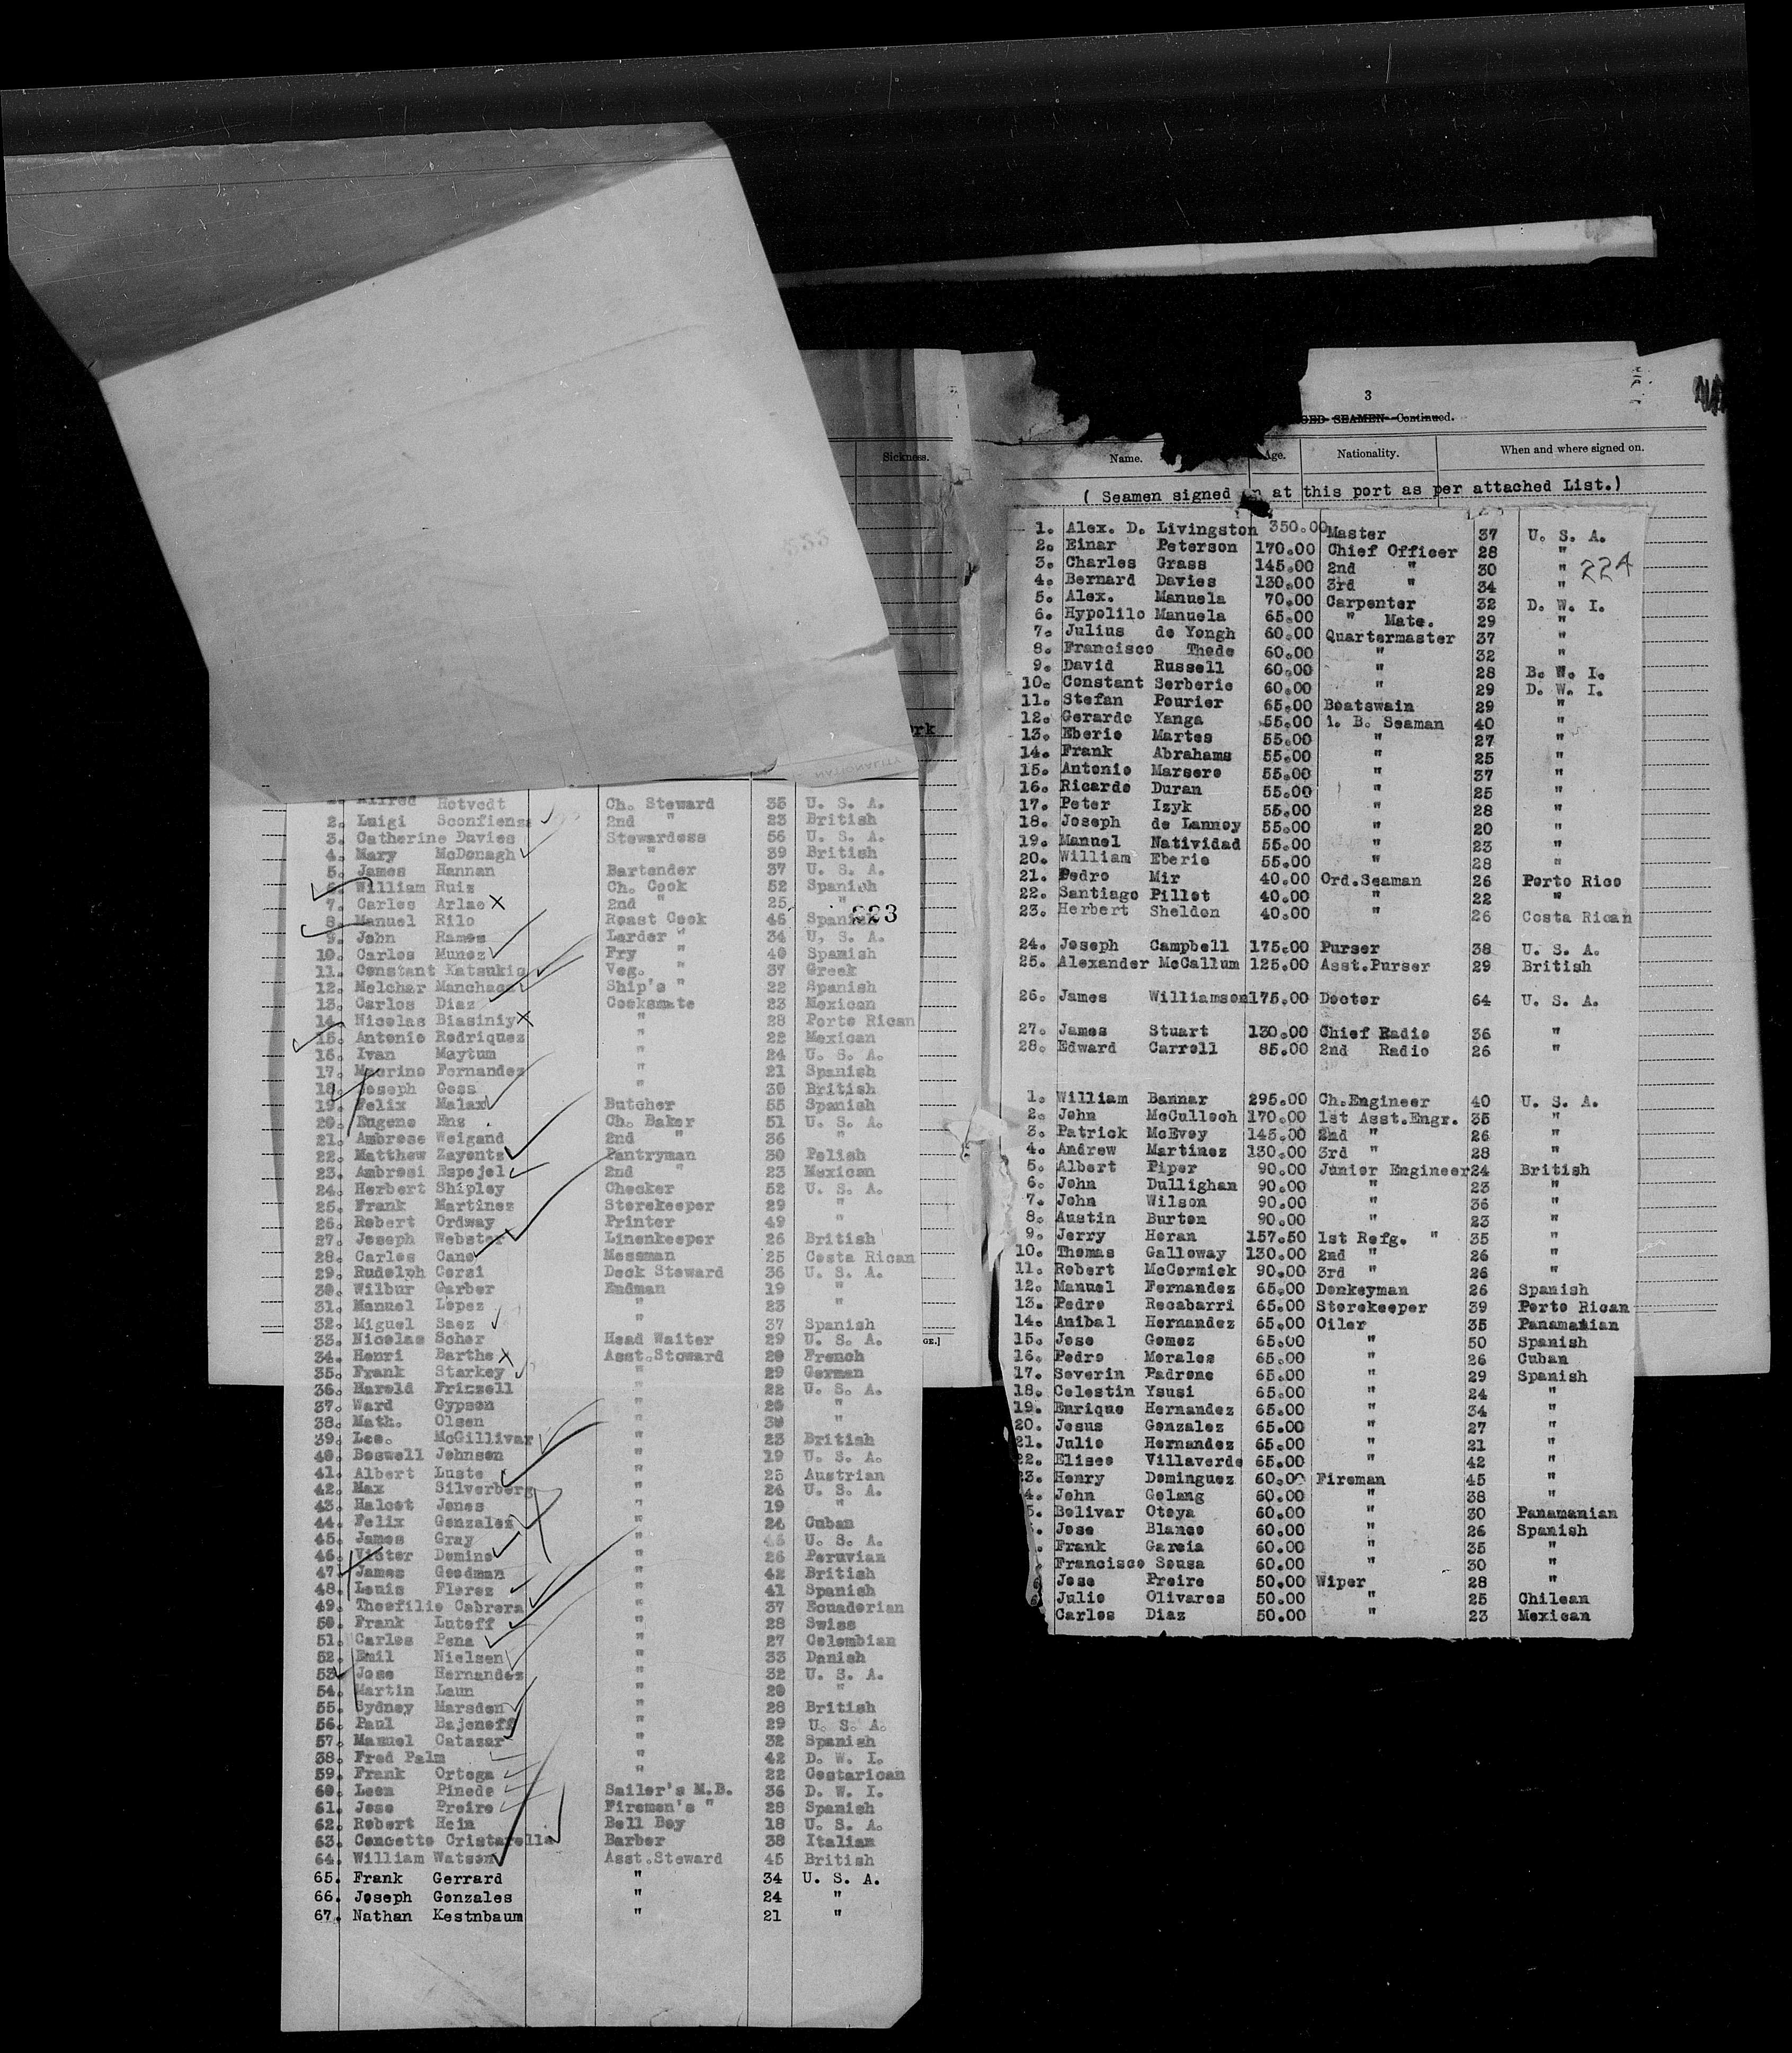 Sickness.
rk
NATIONALITY
1. Alfred Hotvedt Ch. Steward 35 U. S. A.
2. Luigi Sconfienza 2nd " 23 British
3. Catherine Davies Stewardess 56 U. S. A.
4. Mary McDonagh " 39 British
5. James Hannan Bartender 37 U. S. A.
6. William Ruiz Ch. Cook 52 Spanish
7. Carlos Arlae 2nd " 25 "
223
8. Manuel Rilo Roast Cook 45 Spanish
9. John Ramos Larder " 34 U. S. A.
10. Carlos Munoz Fry " 40 Spanish
11. Constant Katsukis Veg. " 37 Greek
12. Melchar Manchaca Ship's " 22 Spanish
13. Carlos Diaz Cooksmate 23 Mexican
14. Nicolas Biasiniy " 28 Porto Rican
15. Antonio Rodriquez " 22 Mexican
16. Ivan Maytum " 24 U. S. A.
17. Macrino Fernandez " 21 Spanish
18. Joseph Goss " 30 British
19. Felix Malax Butcher 55 Spanish
20. Eugene Enz Ch. Baker 51 U. S. A.
21. Ambrose Weigand 2nd " 36 "
22. Matthew Zayontz Pantryman 30 Polish
23. Ambrosi Espejel 2nd " 23 Mexican
24. Herbert Shipley Checker 52 U. S. A.
25. Frank Martinez Storekeeper 29 "
26. Robert Ordway Printer 49 "
27. Joseph Webster Linenkeeper 26 British
28. Carlos Cano Messman 25 Costa Rican
29. Rudolph Corzi Deck Steward 36 U. S. A.
30. Wilbur Garber Endman 19 "
31. Manuel Lopez " 23 "
32. Miguel Saez " 37 Spanish
33. Nicolas Scher Head Waiter 29 U. S. A.
34. Henri Barthe Asst.Steward 20 French
35. Frank Starkey " 29 German
36. Harold Frizzell " 22 U. S. A.
37. Ward Gypson " 20 "
38. Math. Olsen " 30 "
39. Leo. McGillivar " 23 British
40. Boswell Johnson " 19 U. S. A.
41. Albert Luste " 25 Austrian
42. Max Silverberg " 24 U. S. A.
43. Halcot Jones " 19 "
44. Felix Gonzales " 24 Cuban
45. James Gray " U. S. A.
46. Victor Domino " 26 Peruvian
47. James Goodman " 42 British
48. Louis Florez " 41 Spanish
49. Theofilio Cabrera " 37 Ecuadorian
50. Frank Lutoff " 28 Swiss
51. Carlos Pena " 27 Colombian
52. Emil Nielsen " 33 Danish
53. Jose Hernandez " 32 U. S. A.
54. Martin Laun " 20 "
55. Sydney Marsden " 28 British
56. Paul Bajeneff " 29 U. S. A.
57. Manuel Catazar " 32 Spanish
58. Fred Palm " 42 D. W. I.
59. Frank Ortega " 22 Costarican
60. Leon Pinedo Sailor's M.B. 36 D. W. I.
61. Jose Freire Firemen's " 28 Spanish
62. Robert Hein Bell Boy 18 U. S. A.
63. Concetto Cristarella Barber 38 Italian
64. William Watson Asst.Steward 45 British
65. Frank Gerrard " 34 U. S. A.
66. Joseph Gonzales " 24 "
67. Nathan Kestnbaum " 21 "
GE.]
3
GED SEAMEN—Continued.
Name. Age. Nationality. When and where signed on.
( Seamen signed on at this port as per attached List.)
1. Alex. D. Livingston 350.00 Master 37 U. S. A.
2. Einar Peterson 170.00 Chief Officer 28 "
3. Charles Grass 145.00 2nd " 30 "
224
4. Bernard Davies 130.00 3rd " 34 "
5. Alex. Manuela 70.00 Carpenter 32 D. W. I.
6. Hypolilo Manuela 65.00 " Mate. 29 "
7. Julius de Yongh 60.00 Quartermaster 37 "
8. Francisco Thode 60.00 " 32 "
9. David Russell 60.00 " 28 B. W. I.
10. Constant Serberie 60.00 " 29 D. W. I.
11. Stefan Pourier 65.00 Boatswain 29 "
12. Gerardo Yanga 55.00 A. B. Seaman 40 "
13. Eberie Martes 55.00 " 27 "
14. Frank Abrahams 55.00 " 25 "
15. Antonio Marsere 55.00 " 37 "
16. Ricardo Duran 55.00 " 25 "
17. Peter Izyk 55.00 " 28 "
18. Joseph de Lannoy 55.00 " 20 "
19. Manuel Natividad 55.00 " 23 "
20. William Eberie 55.00 " 28 "
21. Pedro Mir 40.00 Ord.Seaman 26 Porto Rico
22. Santiago Pillot 40.00 " 22 "
23. Herbert Sheldon 40.00 " 26 Costa Rican
24. Joseph Campbell 175.00 Purser 38 U. S. A.
25. Alexander McCallum 125.00 Asst.Purser 29 British
26. James Williamson 175.00 Doctor 64 U. S. A.
27. James Stuart 130.00 Chief Radio 36 "
28. Edward Carroll 85.00 2nd Radio 26 "
1. William Bannar 295.00 Ch.Engineer 40 U. S. A.
2. John McCulloch 170.00 1st Asst.Engr. 35 "
3. Patrick McEvoy 145.00 2nd " 26 "
4. Andrew Martinez 130.00 3rd " 28 "
5. Albert Piper 90.00 Junior Engineer 24 British
6. John Dullighan 90.00 " 23 "
7. John Wilson 90.00 " 36 "
8. Austin Burton 90.00 " 23 "
9. Jerry Horan 157.50 1st Refg. " 35 "
10. Thomas Galloway 130.00 2nd " 26 "
11. Robert McCormick 90.00 3rd " 26 "
12. Manuel Fernandez 65.00 Donkeyman 26 Spanish
13. Pedro Recabarri 65.00 Storekeeper 39 Porto Rican
14. Anibal Hernandez 65.00 Oiler 35 Panamanian
15. Jose Gomez 65.00 " 50 Spanish
16. Pedro Morales 65.00 " 26 Cuban
17. Severin Padrone 65.00 " 29 Spanish
18. Celestin Ysusi 65.00 " 24 "
19. Enrique Hernandez 65.00 " 34 "
20. Jesus Gonzalez 65.00 " 27 "
21. Julio Hernandez 65.00 " 21 "
22. Eliseo Villaverde 65.00 " 42 "
23. Henry Dominguez 60.00 Fireman 45 "
4. John Golang 60.00 " 38 "
5. Bolivar Otoya 60.00 " 30 Panamanian
Jose Blanco 60.00 " 26 Spanish
Frank Garcia 60.00 " 35 "
Francisco Sousa 60.00 " 30 "
Jose Freire 50.00 Wiper 28 "
Julio Olivares 50.00 " 25 Chilean
Carlos Diaz 50.00 " 23 Mexican